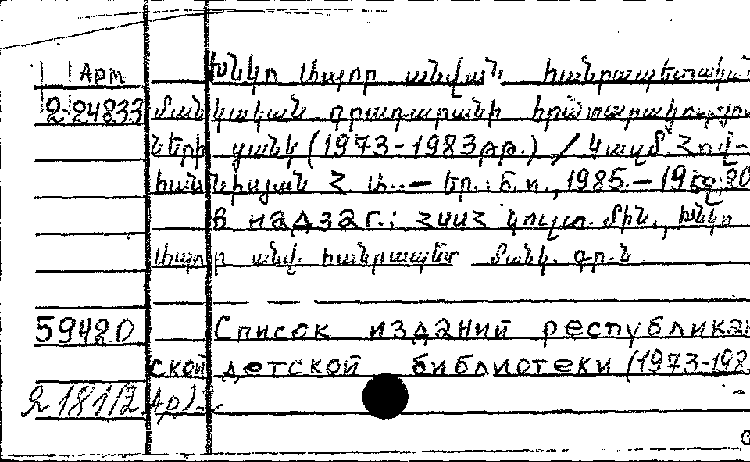 Арм Խնկո Ապոր անվան հանրապետական
2-24833 ման կական գրադարանի հրատարակություն
ների ցանկ (1973-1983թթ.) / Կազմ. Հով-
հան նիսյան Հ. Ա. — Եր.: Б. и., 1985. — 19
В надзаг.: ՀՍՍՀ կուլտ. մին., Խնկո
Ապոր անվ. հանրապետ մանկ. գր-ն
59480 Список изданий республикан
ской детской библиотеки (1973-198
2181/2 Ар).